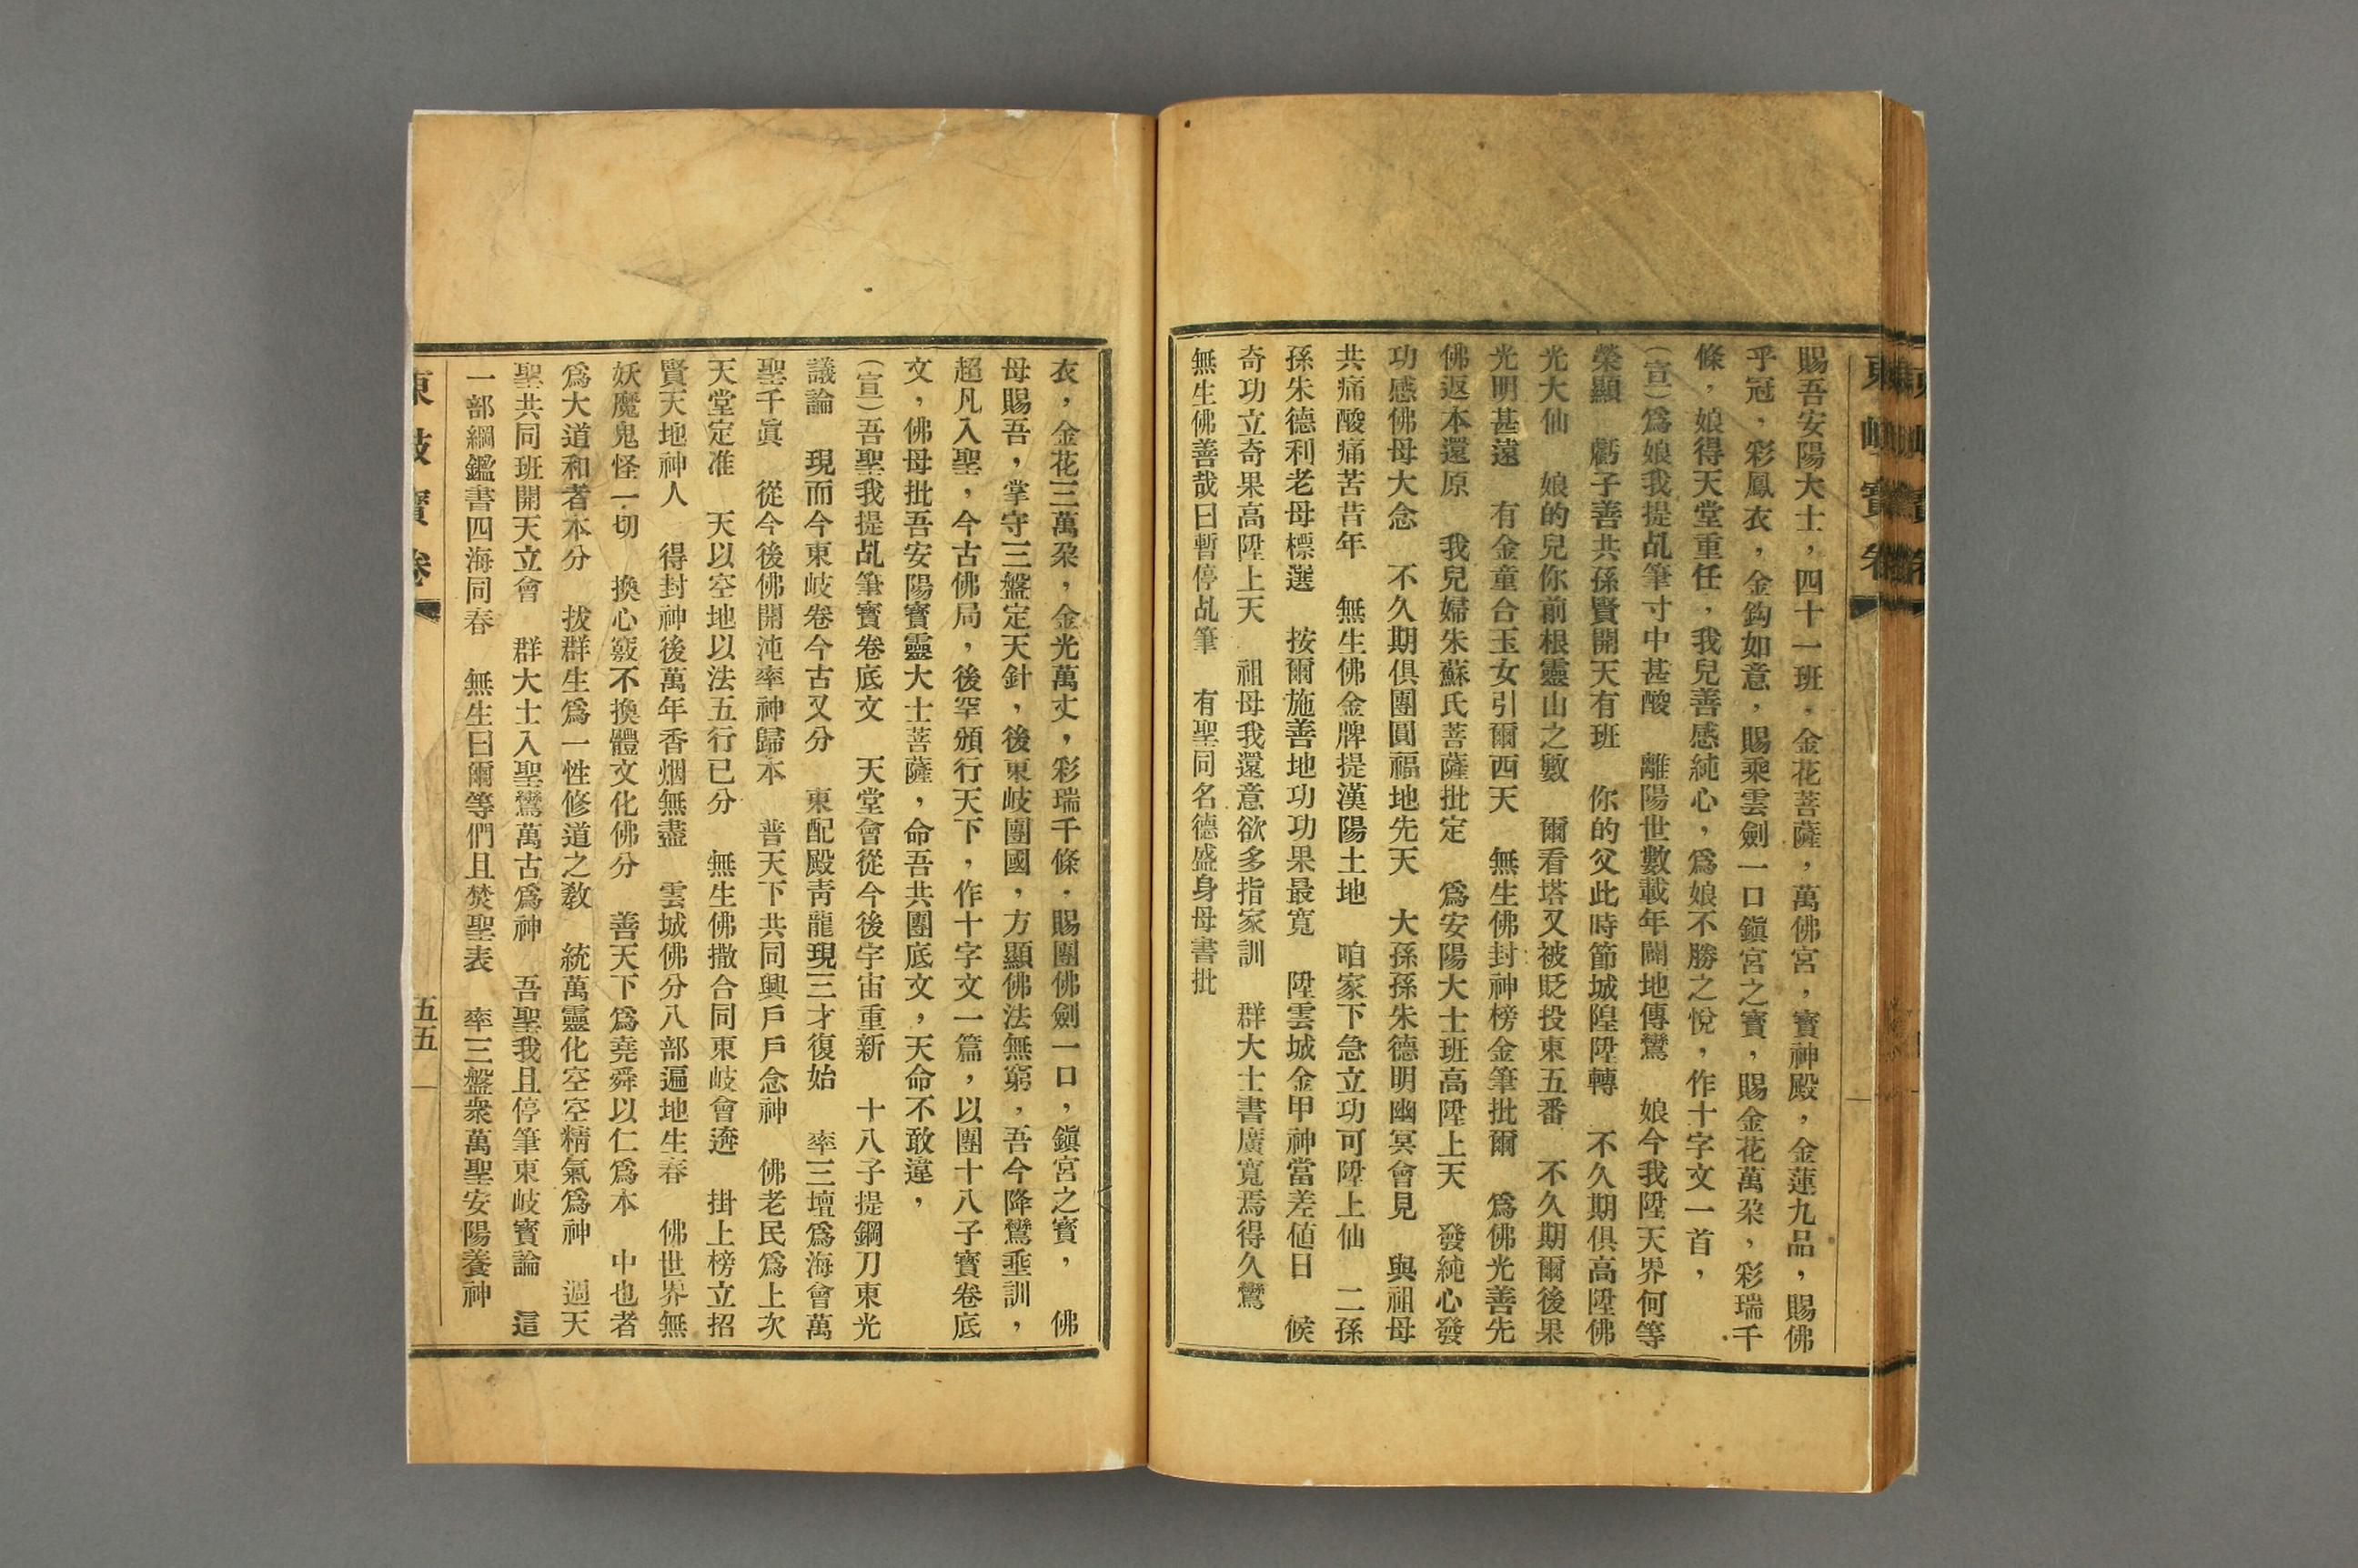 東岐寶卷
賜吾安陽大士，四十一班．金花菩薩，萬佛宮，寶神殿，金蓮九品，賜佛
乎冠，彩鳳衣，金鈎如意，賜乘雲劍一口鎮宮之寶，賜金花萬朶，彩瑞千
條，娘得天堂重任，我兒善感純心，爲娘不勝之悅，作十字文一首，
（宣）爲娘我提乩筆寸中甚酸　離陽世數載年闘地傳鸞　娘今我陞天界何等
榮顯　虧子善共孫賢開天有班　你的父此時節城隍陞轉　不久期俱高陞佛
光大仙　娘的兒你前根靈山之數　爾看塔又被貶投東五番　不久期爾後果
光明甚遠　有金童合玉女引爾西天　無生佛封神榜金筆批爾　爲佛光善先
佛返本還原　我兒婦朱蘇氏菩薩批定　爲安陽大士班高陞上天　發純心發
功感佛母大念　不久期俱團圓福地先天　大孫孫朱德明幽冥會見　與祖母
共痛酸痛苦昔年　無生佛金牌提漢陽土地　咱家下急立功可陞上仙　二孫
孫朱德利老母標選　按爾施善地功功果最寬　陞雲城金甲神當差値日　候
奇功立奇果高陞上天　祖母我還意欲多指家訓　群大士書廣寬焉得久鸞
無生佛善哉曰暫停乩筆　有聖同名德盛身母書批
衣，金花三萬朶，金光萬丈，彩瑞千條．賜團佛劍一口，鎮宮之寶，　佛
母賜吾，掌守三盤定天針，後東岐團國，方顯佛法無窮，吾今降鸞埀訓，
超凡入聖，今古佛局，後罕頒行天下，作十字文一篇，以團十八子寶卷底
文，佛母批吾安陽寶靈大士菩薩，命吾共團底文，天命不敢違，
（宣）吾聖我提乩筆寶卷底文　天堂會從今後宇宙重新　十八子提鋼刀東光
議論　現而今東岐卷今古又分　東配殿靑龍現三才復始　率三壇爲海會萬
聖千眞　從今後佛開沌率神歸本　普天下共同興戶戶念神　佛老民爲上次
天堂定准　天以空地以法五行已分　無生佛撒合同東岐會遴　掛上榜立招
賢天地神人　得封神後萬年香烟無盡　雲城佛分八部遍地生春　佛世界無
妖魔鬼怪一切　換心竅不換體文化佛分　善天下爲堯舜以仁爲本　中也者
爲大道和者本分　拔群生爲一性修道之敎　統萬靈化空空精氣爲神　週天
聖共同班開天立會　群大士入聖鸞萬古爲神　吾聖我且停筆東岐寶論　這
一部綱鑑書四海同春　無生曰爾等們且焚聖表　率三盤衆萬聖安陽養神
東岐寶卷
五五